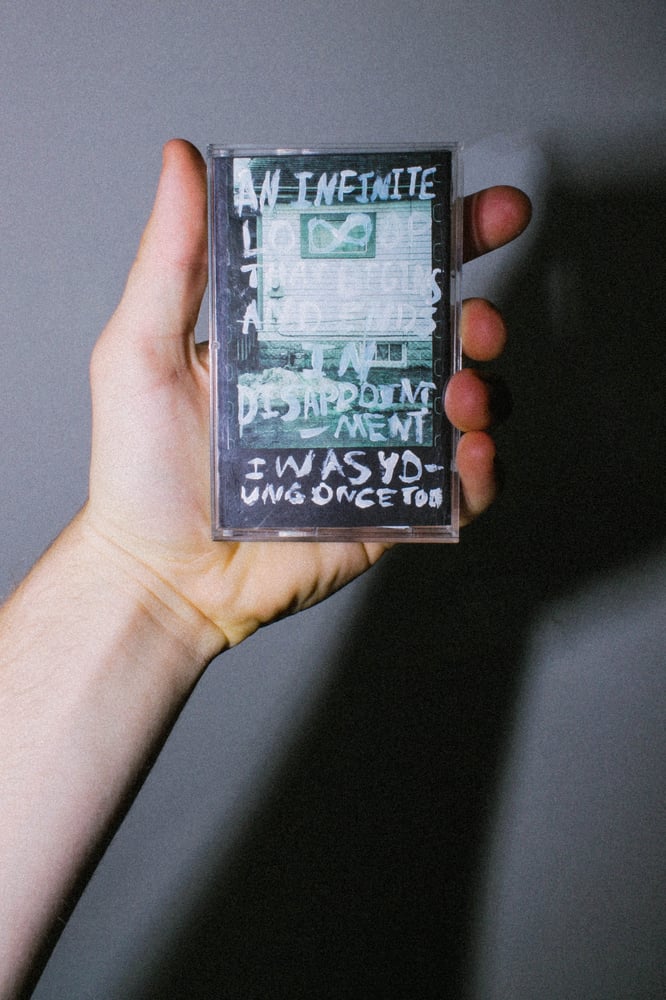 AN INFINITE
LO∞OP
THAT BEGINS
AND ENDS
IN
DISAPPOINT
-MENT
I WAS YO-
UNG ONCE TOO